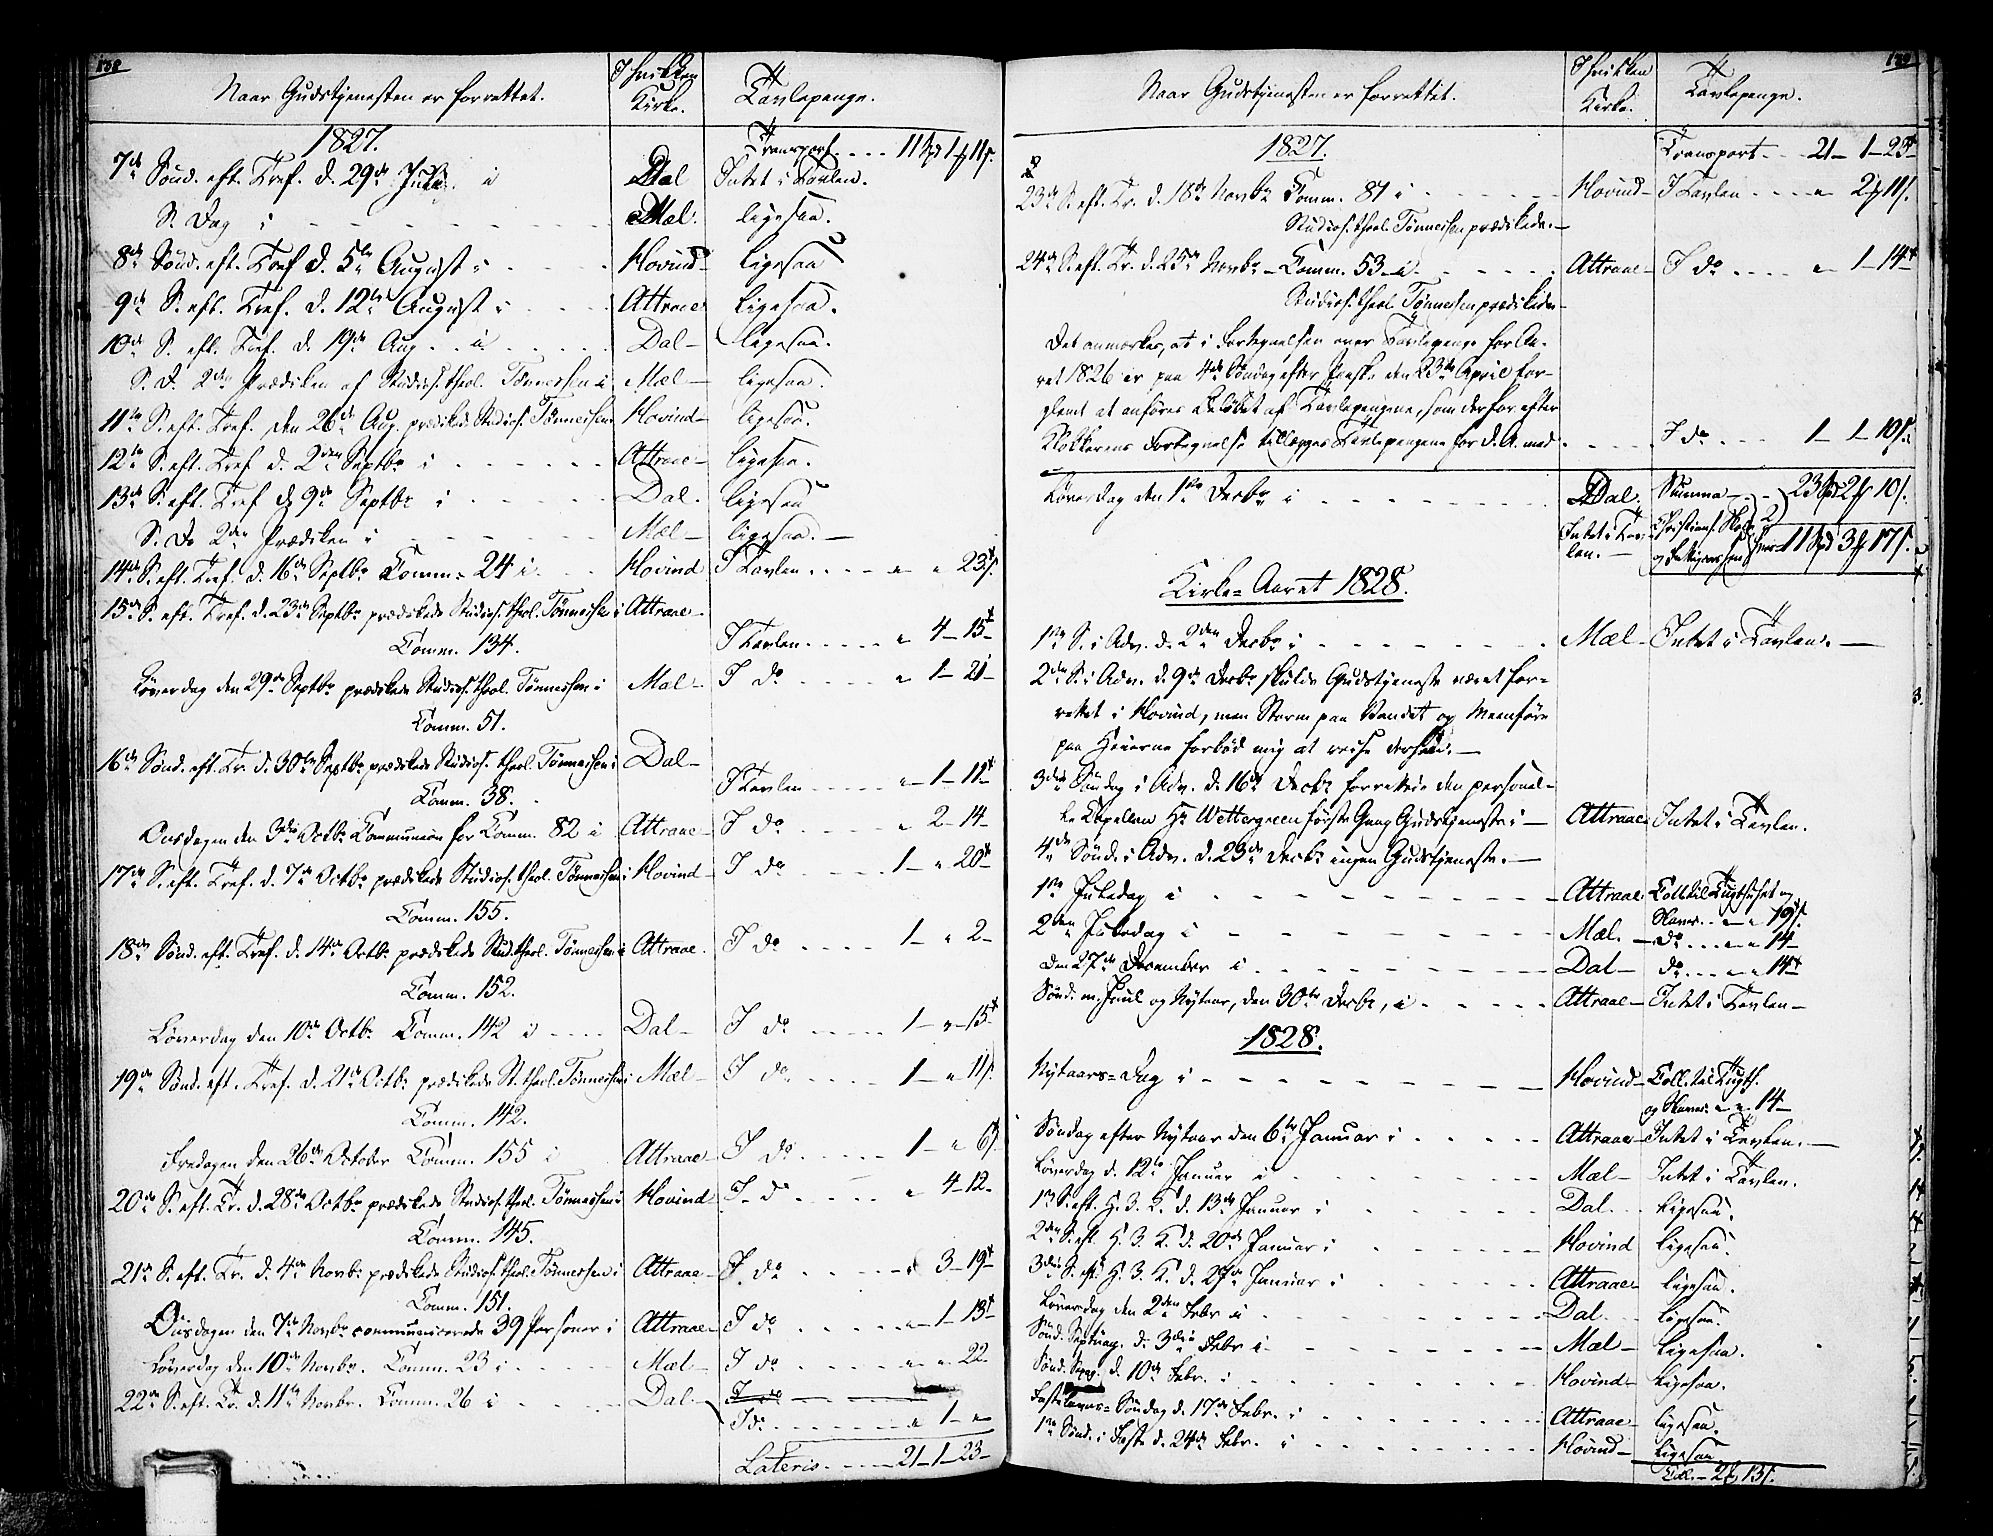 138
Naar Gudstjenesten er forrettet.
I hvilken Kirke.
Tavlepenge.
1827.
Transport. . . . 11 Spd 1 # 11 s.
7de Sönd. eft. Tref. d. 29de Juli i Dal Intet i Tavlen.
S. Dag i Mæl. ligesaa.
8de Sönd. eft. Tref d. 5te August i Hovind ligesaa
9de S. eft. Tref. d. 12te August i Attraae ligesaa.
10de S. eft. Tref. d. 19de Aug. i Dal ligesaa.
S. D. 2den Prædiken af Studios. theol. Tönnessen i Mæl ligesaa.
11te S. eft. Tref. den 26de Aug. prædik. Studios. Tönnessen Hovind ligesaa.
12te S. eft. Tref d. 2den Septbr i Attraae ligesaa.
13de S. eft. Tref d. 9de Septbr i Dal. ligesaa
S. D. 2den Prædiken i Mæl ligesaa.
14de S. eft. Tref. d. 16de Septbr Comm. 24 i Hovind I Tavlen . . . . " " 23 s.
15de S. eft. Tref. d. 23de Septbr prædikede Studios. theol. Tönnessen i Attraae
Comm. 134. I Tavlen . . . . . " 4 - 15
Löverdag den 29de Septbr prædikede Studios. theol. Tönnessen i Mæl I do . . . . " 1 - 21
Comm. 51.
16de Sönd. eft. Tr. d. 30te Septbr prædikede Studios. theol. Tönnessen i Dal
Comm. 38. I Tavlen . . . . . " 1 - 11
Onsdagen den 3die Octbr Communion for Comm. 82 i Attraae I do . . . . " 2 - 14
17de S. eft. Tref. d. 7de Octbr prædikede Studios. theol. Tönnessen i Hovind I do . . . . 1 - " 20
Comm. 155.
18de Sönd. eft. Tref. d. 14de Octbr prædikede Stud. theol. Tönnessen i Attraae. I do . . . . 1 - " 2
Comm. 152.
Löverdag den 10de Octbr Comm. 142 i Dal I do . . . . . 1 - " 15
19de Sönd. eft. Tref. d. 21de Octbr prædikede St. theol. Tönnessen i Mæl I do . . . . 1 - " 11 s.
Comm. 142.
Fredagen den 26de October Comm. 155 i Attraae I do . . . . . 1 - " 6 s.
20de S. eft. Tr. d. 28de Octbr prædikede Studios. theol. Tönnessen i Hovind I. do . . . . " 4 - 12
Comm. 145.
21de S. eft. Tr. d. 4de Novbr prædikede Studios. theol. Tönnessen i Attraae I. do . . . . " 3 - 19
Comm. 151.
Onsdagen den 7de Novbr communicerede 39 Personer i Attraae I do . . . . . " 1 - 13
Löverdag den 10de Novbr. Comm. 23 i Mæl I do . . . . . " " 22
22de S. eft. Tr. d. 11te Novbr. Comm. 26 i Dal I do
I do . . . . . " 1 - "
Lateris. . . . . 21 - 1 - 23
139
Naar Gudstjenesten er forrettet.
I hvilken Kirke.
Tavlepenge.
1827.
Transport . . . 21 - 1 - 23
23de S. eft. Tr. d. 18de Novbr Comm. 81 i Hovind I Tavlen . . . . " 2 # 11 s.
Studios. theol. Tönnessen prædikede.
24de S. eft. Tr. d. 25de Novbr Comm. 53 i Attraae I do . . . . " 1 - 14
Studios. theol. Tönnessen prædikede
Det anmærkes, at i Fortegnelsen over Tavlepenge for Aa-
ret 1826 er paa 4de Söndag efter Paaske den 23de April for-
glemt at anföres Belöbet af Tavlepengene, som derfor efter
Klokkerens Fortegnelse tillægges Tavlepengene for d. A. med . . . I do . . . 1 - 1 - 10 s.
Löverdag den 1ste Decbr i Dal. Summa . . . 23 Spd 2 # 10 s.
Intet i Tavlen. Christians. Skole og Fattigvæsen hver 11 Spd 3 # 17 s.
Kirke-Aaret 1828.
1ste S. i Adv. d. 2den Decbr i Mæl Intet i Tavlen.
2den S. i Adv. d. 9de Decbr skulde Gudstjeneste været for-
rettet i Hovind, men Storm paa Vandet og Meenföre
paa Heierne forböd mig at reise derhen.
3die Söndag i Adv. d. 16de Decbr forrettede den personel-
le Capellan Hr Wettergreen förste Gang Gudstjeneste i Attraae Intet i Tavlen.
4de Sönd. i Adv. d. 23de Decbr ingen Gudstjeneste.
1ste Juledag i Attraae Coll. til Tugthuset og
Slaver. . " " 19 s.
2den Juledag i Mæl. do . . . " " 14
den 27de December i Dal do . . . " " 14
Sönd. m. Juul og Nytaar, den 30te Decbr, i Attraae Intet i Tavlen
1828.
Nytaars-Dag i Hovind Coll. til Tugth.
og Slaver. " " 14
Söndag efter Nytaar den 6te Januar i Attraae Intet i Tavlen.
Löverdag d. 12te Januar i Mæl Intet i Tavlen.
1ste S. eft. H. 3. K. d. 13de Januar i Dal. ligesaa.
2den S. eft. H. 3. K. d. 20de Januar i Hovind ligesaa.
3die S. eft. H. 3. K. d. 27de Januar i Attraae ligesaa.
Löverdag den 2den Febr i Dal ligesaa.
Sönd. Septuag. d. 3die Febr i Mæl ligesaa.
Sönd. Sexag. d. 10de Febr. i Hovind ligesaa.
Fastelavns-Söndag d. 17de Febr. i Attraae ligesaa.
1ste Sönd. i Faste d. 24de Febr. i Hovind ligesaa
Coll. 2 # 13 s.